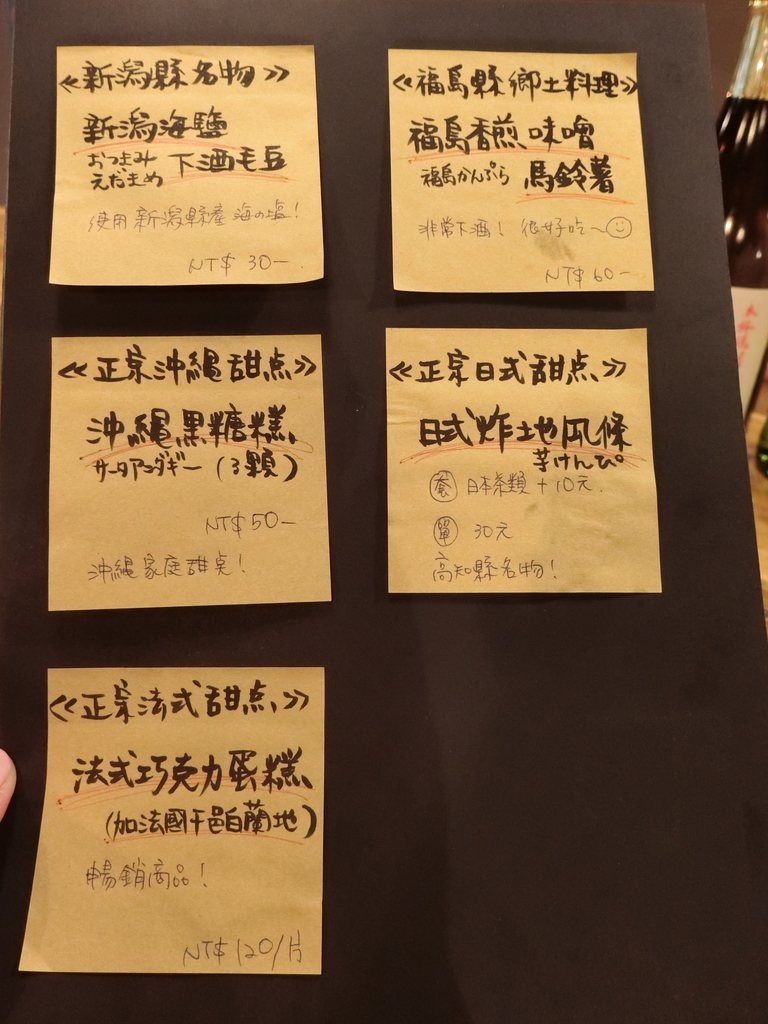 ≪新潟縣名物≫
新潟海鹽
おつよみ
えだまめ 下酒毛豆
使用新潟縣産海の塩!
NT$ 30-
≪福島縣鄉土料理≫
福島香煎味噌
福島かんぷら 馬鈴薯
非常下酒! 很好吃~☺
NT$ 60-
≪正宗沖縄甜点≫
沖縄黒糖糕
サータアンダギー (3顆)
NT$ 50-
沖縄家庭甜点!
≪正宗日式甜点≫
日式炸地瓜條
芋けんぴ
套 日本茶類 +10元.
單 30元
高知縣名物!
≪正宗法式甜点≫
法式巧克力蛋糕
(加法國干邑白蘭地)
暢銷商品!
NT$ 120/片